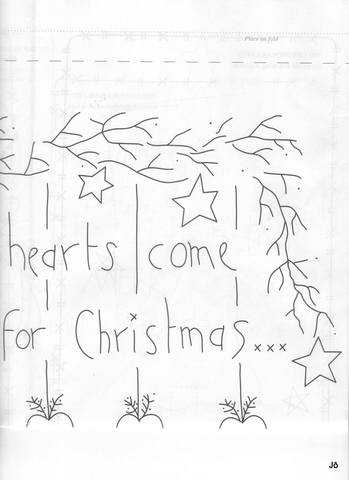 Place on fold
hearts come
for Christmas... xxx
Jô